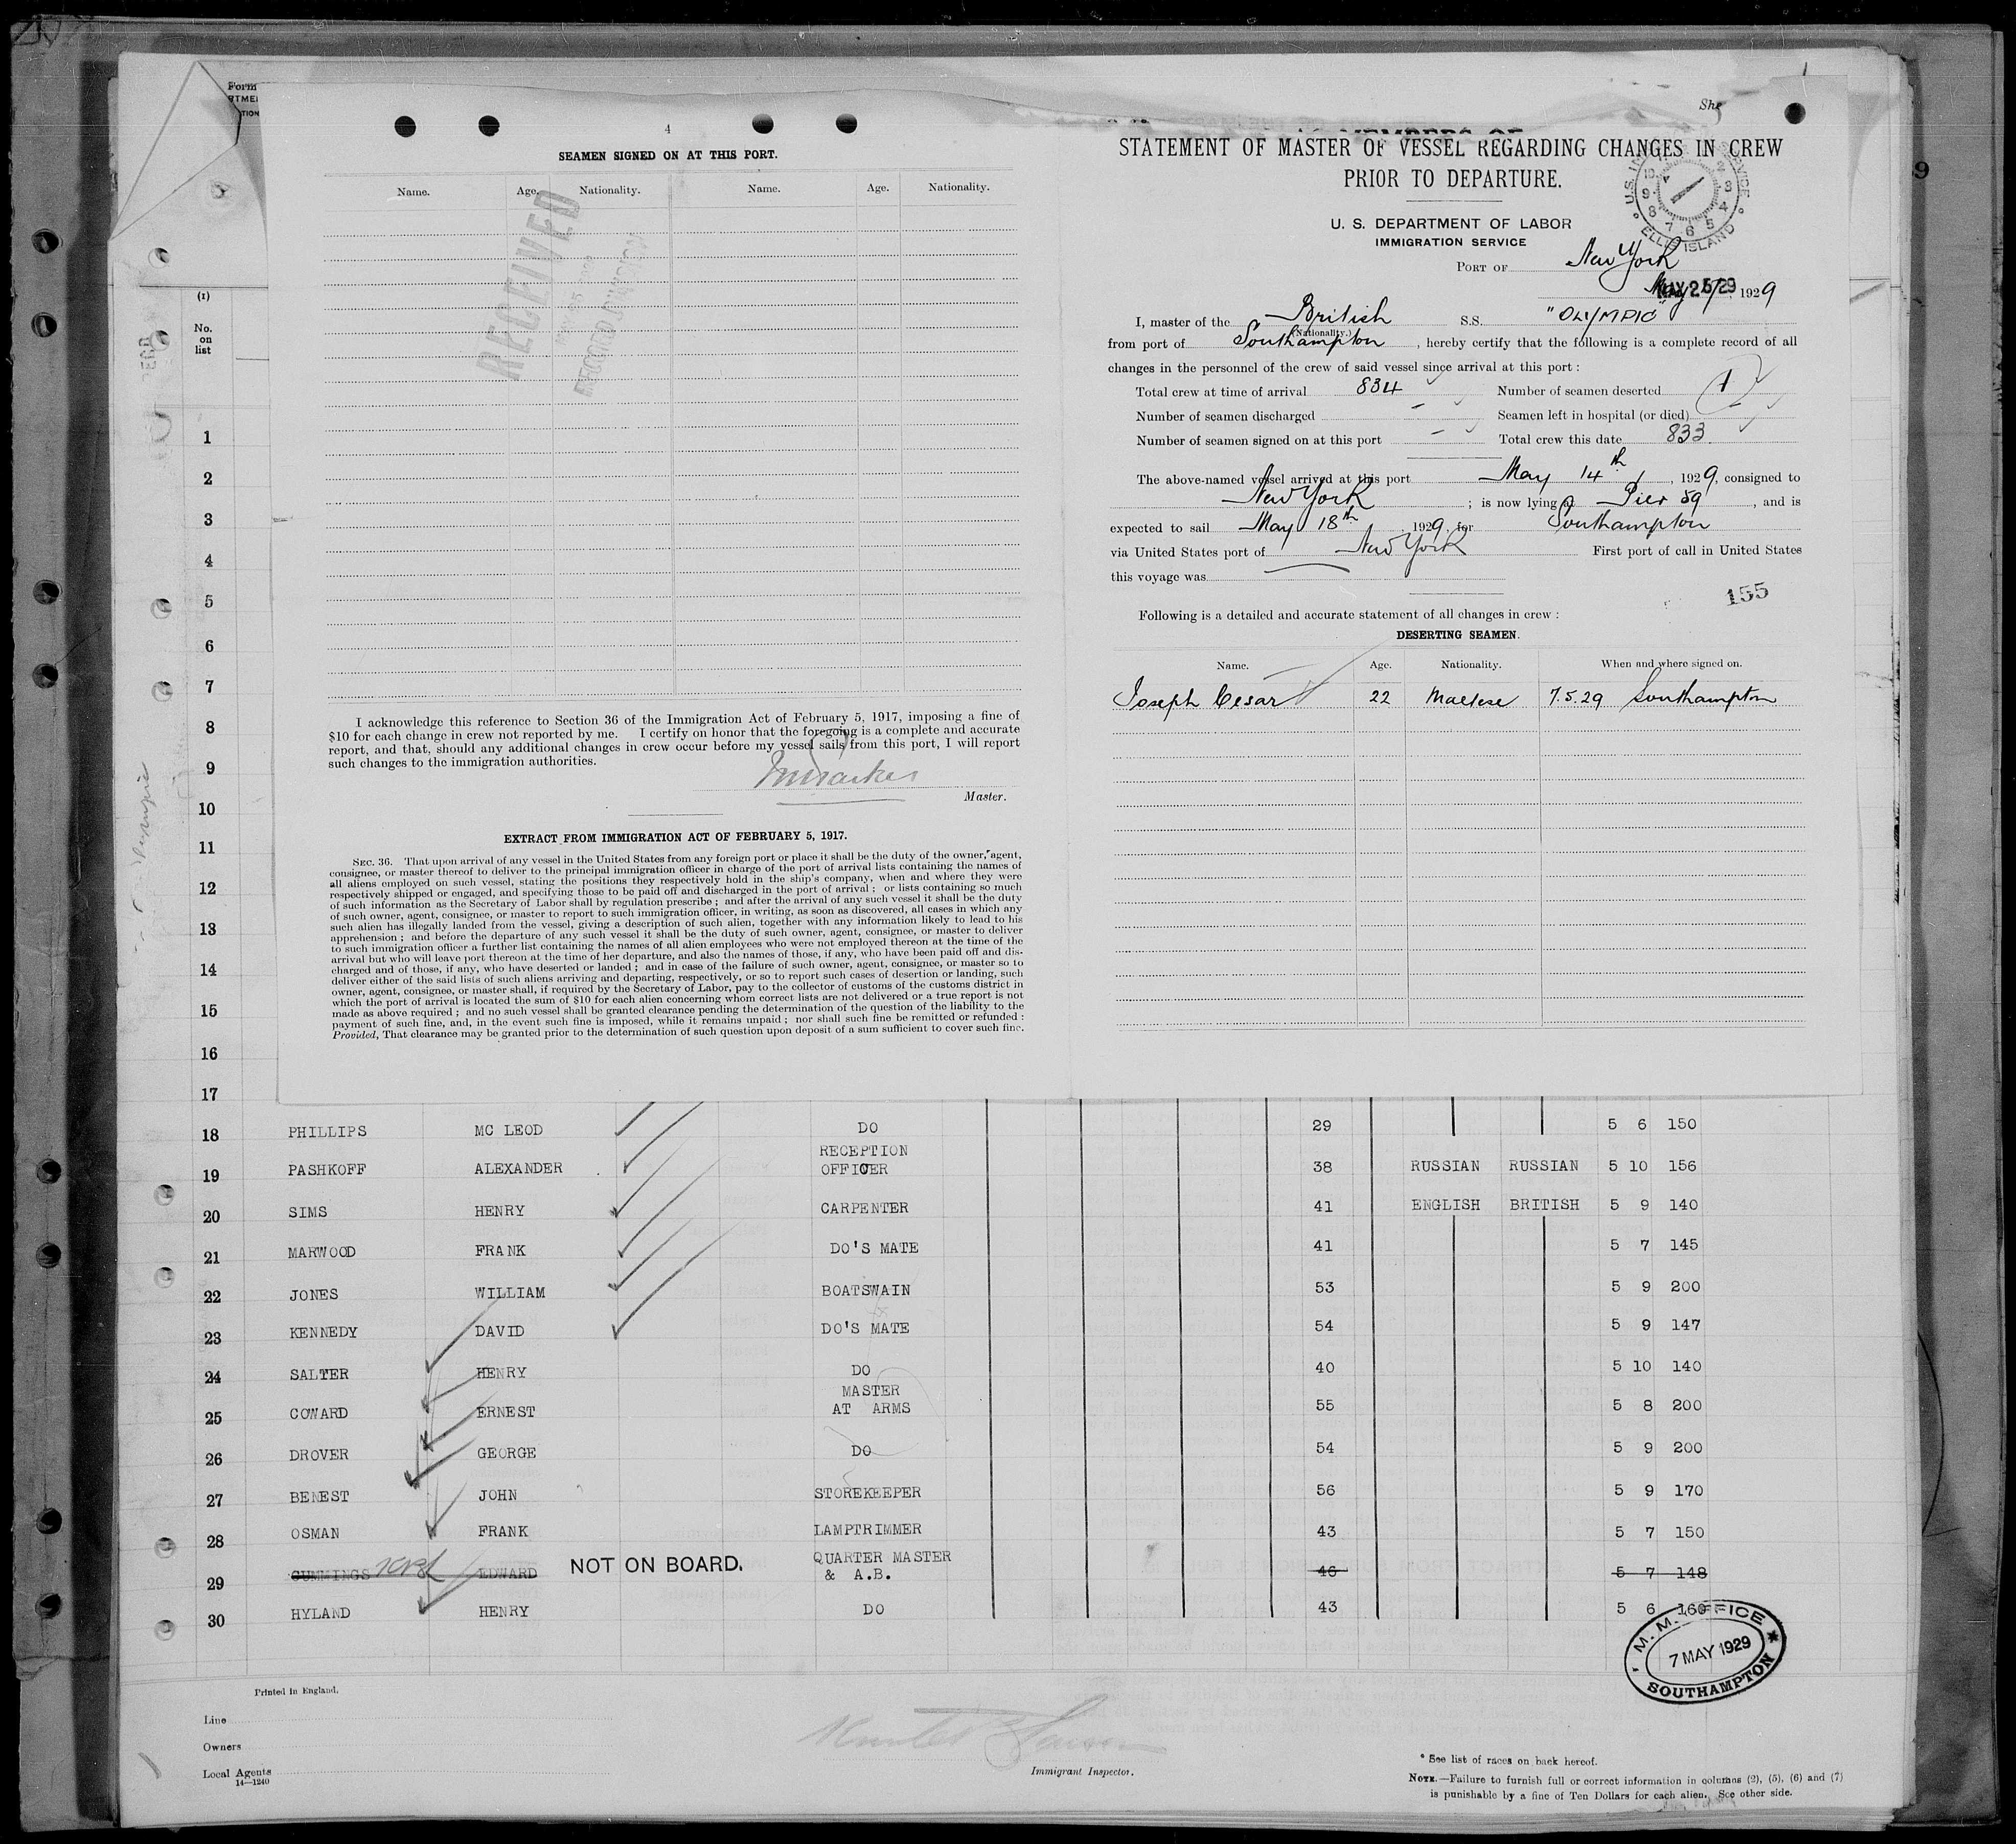 Form
RTME
TION
4
SEAMEN SIGNED ON AT THIS PORT.
Name. Age. Nationality. Name. Age. Nationality.
RECEIVED
I acknowledge this reference to Section 36 of the Immigration Act of February 5, 1917, imposing a fine of
$10 for each change in crew not reported by me. I certify on honor that the foregoing is a complete and accurate
report, and that, should any additional changes in crew occur before my vessel sails from this port, I will report
such changes to the immigration authorities.
Master.
EXTRACT FROM IMMIGRATION ACT OF FEBRUARY 5, 1917.
SEC. 36. That upon arrival of any vessel in the United States from any foreign port or place it shall be the duty of the owner, agent,
consignee, or master thereof to deliver to the principal immigration officer in charge of the port of arrival lists containing the names of
all aliens employed on such vessel, stating the positions they respectively hold in the ship's company, when and where they were
respectively shipped or engaged, and specifying those to be paid off and discharged in the port of arrival; or lists containing so much
of such information as the Secretary of Labor shall by regulation prescribe; and after the arrival of any such vessel it shall be the duty
of such owner, agent, consignee, or master to report to such immigration officer, in writing, as soon as discovered, all cases in which any
such alien has illegally landed from the vessel, giving a description of such alien, together with any information likely to lead to his
apprehension; and before the departure of any such vessel it shall be the duty of such owner, agent, consignee, or master to deliver
to such immigration officer a further list containing the names of all alien employees who were not employed thereon at the time of the
arrival but who will leave port thereon at the time of her departure, and also the names of those, if any, who have been paid off and dis-
charged and of those, if any, who have deserted or landed; and in case of the failure of such owner, agent, consignee, or master so to
deliver either of the said lists of such aliens arriving and departing, respectively, or so to report such cases of desertion or landing, such
owner, agent, consignee, or master shall, if required by the Secretary of Labor, pay to the collector of customs of the customs district in
which the port of arrival is located the sum of $10 for each alien concerning whom correct lists are not delivered or a true report is not
made as above required; and no such vessel shall be granted clearance pending the determination of the question of the liability to the
payment of such fine, and, in the event such fine is imposed, while it remains unpaid; nor shall such fine be remitted or refunded:
Provided, That clearance may be granted prior to the determination of such question upon deposit of a sum sufficient to cover such fine.
She
STATEMENT OF MASTER OF VESSEL REGARDING CHANGES IN CREW
PRIOR TO DEPARTURE.
U. S. DEPARTMENT OF LABOR
IMMIGRATION SERVICE
ELLIS ISLAND
PORT OF New York
MAY 25 29 1929
I, master of the British S.S. "OLYMPIC"
(Nationality.)
from port of Southampton, hereby certify that the following is a complete record of all
changes in the personnel of the crew of said vessel since arrival at this port:
Total crew at time of arrival 834 Number of seamen deserted 1
Number of seamen discharged - Seamen left in hospital (or died) -
Number of seamen signed on at this port - Total crew this date 833.
The above-named vessel arrived at this port May 14th, 1929, consigned to
New York; is now lying at Pier 59, and is
expected to sail May 18th 1929, for Southampton
via United States port of New York First port of call in United States
this voyage was
155
Following is a detailed and accurate statement of all changes in crew:
DESERTING SEAMEN.
Name. Age. Nationality. When and where signed on.
Joseph Cesar 22 Maltese 7.5.29 Southampton
(1)
No.
on
list
1
2
3
4
5
6
7
8
9
10
11
12
13
14
15
16
17
18 PHILLIPS MC LEOD DO 29 5 6 150
19 PASHKOFF ALEXANDER RECEPTION OFFICER 38 RUSSIAN RUSSIAN 5 10 156
20 SIMS HENRY CARPENTER 41 ENGLISH BRITISH 5 9 140
21 MARWOOD FRANK DO'S MATE 41 5 7 145
22 JONES WILLIAM BOATSWAIN 53 5 9 200
23 KENNEDY DAVID DO'S MATE 54 5 9 147
24 SALTER HENRY DO 40 5 10 140
25 COWARD ERNEST MASTER AT ARMS 55 5 8 200
26 DROVER GEORGE DO 54 5 9 200
27 BENEST JOHN STOREKEEPER 56 5 9 170
28 OSMAN FRANK LAMPTRIMMER 43 5 7 150
29 CUMMINGS EDWARD NOT ON BOARD. QUARTER MASTER & A.B. 46 5 7 148
30 HYLAND HENRY DO 43 5 6 160
M. M. OFFICE
7 MAY 1929
SOUTHAMPTON
Printed in England.
Line
Owners
Local Agents
14—1240
Immigrant Inspector.
* See list of races on back hereof.
NOTE.—Failure to furnish full or correct information in columns (2), (5), (6) and (7)
is punishable by a fine of Ten Dollars for each alien. See other side.